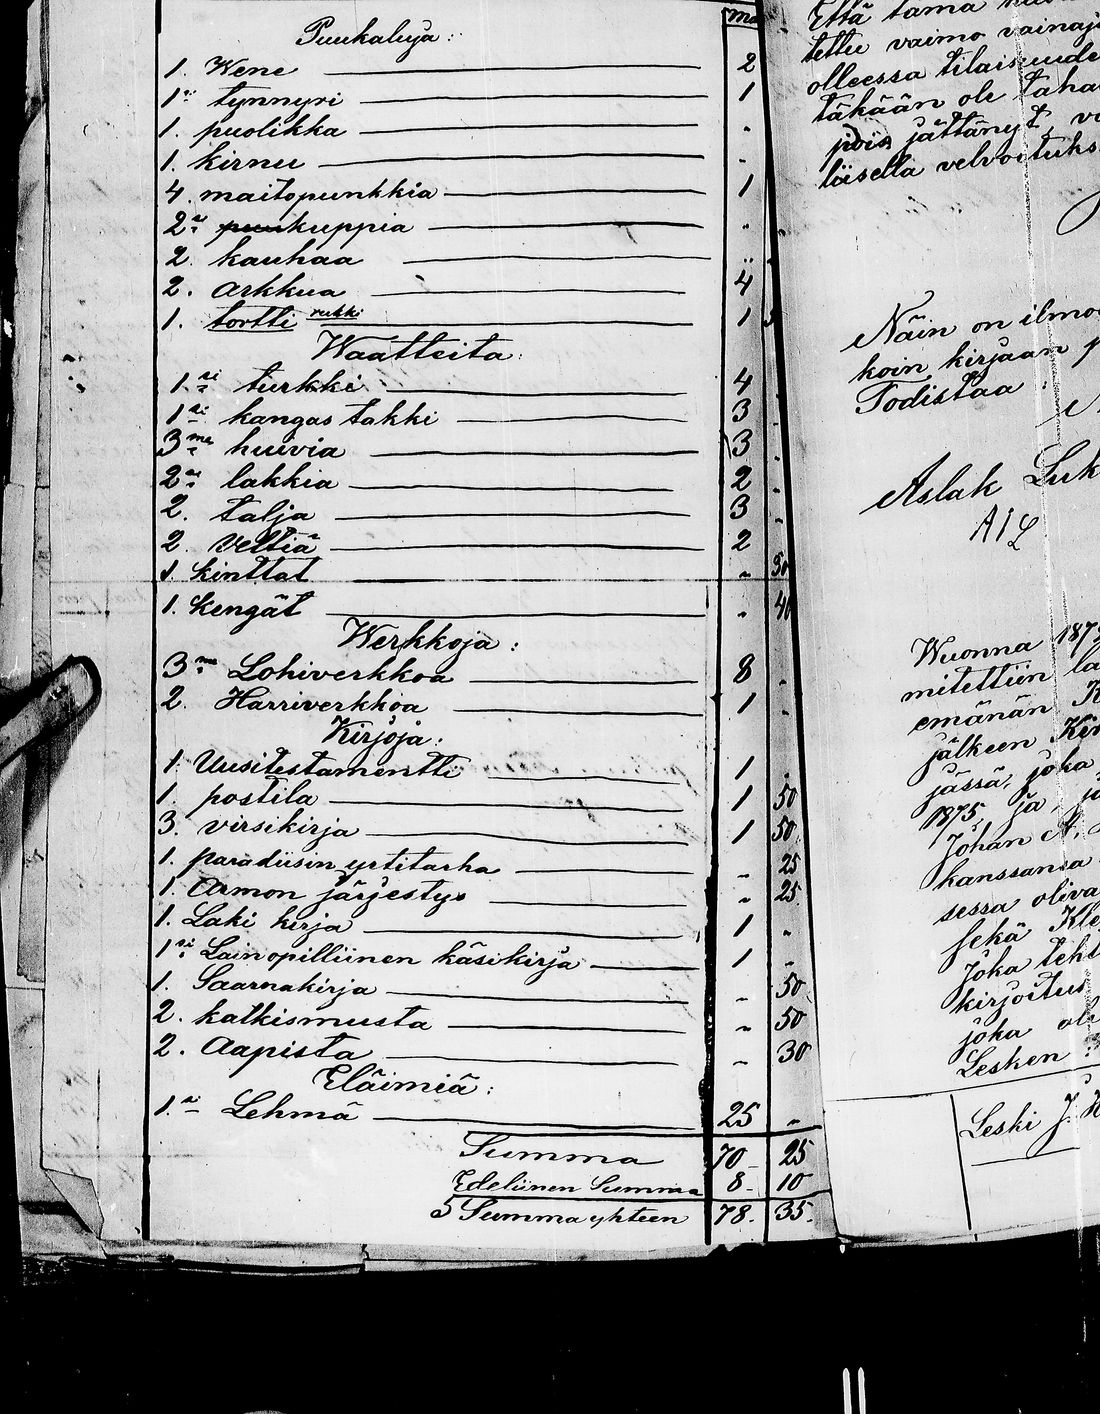 Puukaluja:
1. Wene 2
1si tynnyri 1 
1. puolikka -
1. kirnu -
4. maitopunkkia 1
2si puukuppia -
2. kauhaa "
2. arkkua 4
1. tortti rukki 1
Waatteita:
1si turkki 4 -
1si kangas takki 3 -
3me huivia 3 -
2si lakkia 2 -
2. talja 3 -
2. Veltiä 2
1. kinttat - 50
1. kengät - 40
Werkkoja:
3me Lohiverkkoa 8 -
2. Harriverkkoa 1 -
Kirjoja:
1. Uusitestamentti 1 -
1. postila 1 50
3. virsikirja 1 50
1. paradiisin yrtitarha - 25
1. Armon järjestys - 25
1. Laki kirja 1 -
1si Lainopillinen käsikirja 1 -
1. Saarnakirja - 50
2. katkismusta - 50
2. Aapista - 30
Eläimiä:
1si Lehmä 25 -
Summa 70 - 25
Edellinen Summa 8 - 10
Summa yhteen 78. 35.
Että tämä
tettu vaimo vainaj
olleessa tilaisuude
täkään ole taha
pois jättänyt, va
läisellä velvoituks
Näin on ilmo
koin kirjaan p
Todistaa:
Aslak Luk
A I L
Wuonna 1875
mitettiin la
emänän K
jälkeen
jässä, joka
1875, ja, j
Johan A.
kanssansa
sessa oliva
sekä Kle
Joka teht
kirjoitus
joka ole
Lesken:
Leski J. K